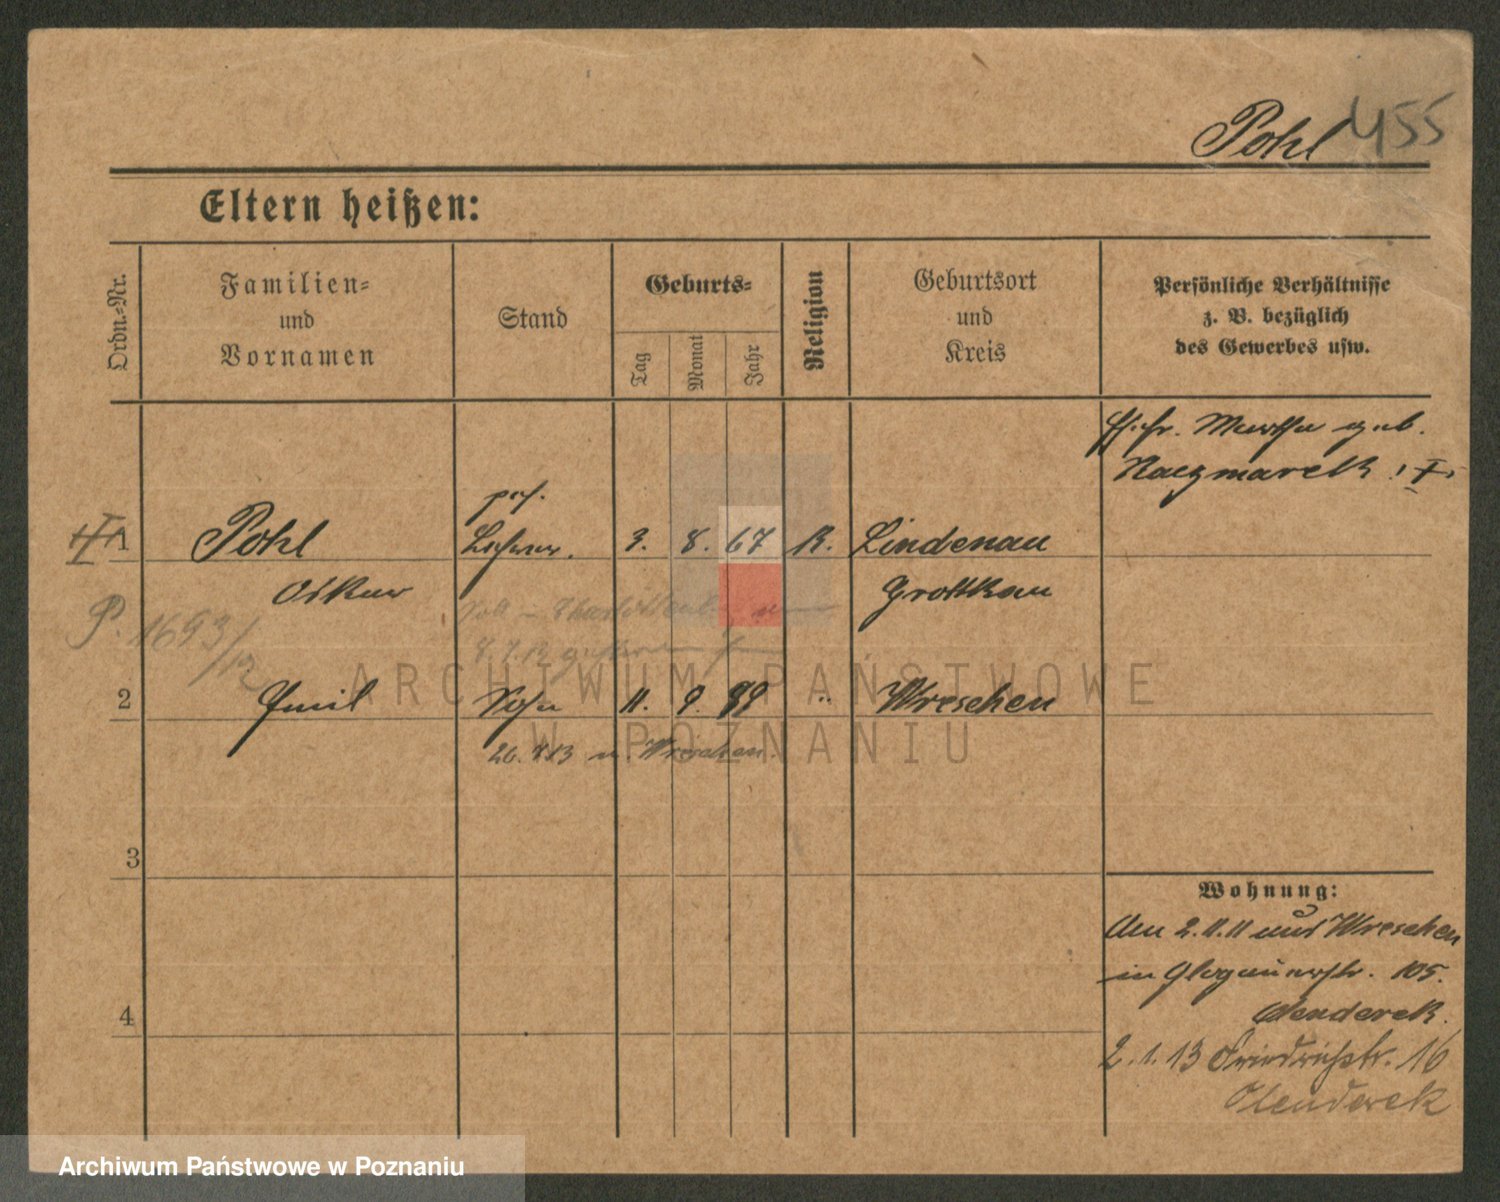 Pohl 455
Eltern heißen:
Ordn.-Nr.
Familien-
und
Vornamen
Stand
Geburts-
Tag
Monat
Jahr
Religion
Geburtsort
und
Kreis
Persönliche Verhältnisse
z. B. bezüglich
des Gewerbes usw.
Ehefr. Martha geb.
Kaczmarek
1 Pohl
Oskar
3. 8. 67 K. Lindenau
Grottkau
P. 1693/12
2 Emil Sohn 11. 9. 99 " Wreschen
26. 8 13 n. Wreschen
3
4
Wohnung:
Am 2.11.11 aus Wreschen
in Glogauerstr. 105.
Olenderek.
2.1.13 Friedrichstr. 16
Olenderek
ARCHIWUM PAŃSTWOWE
W POZNANIU
Archiwum Państwowe w Poznaniu